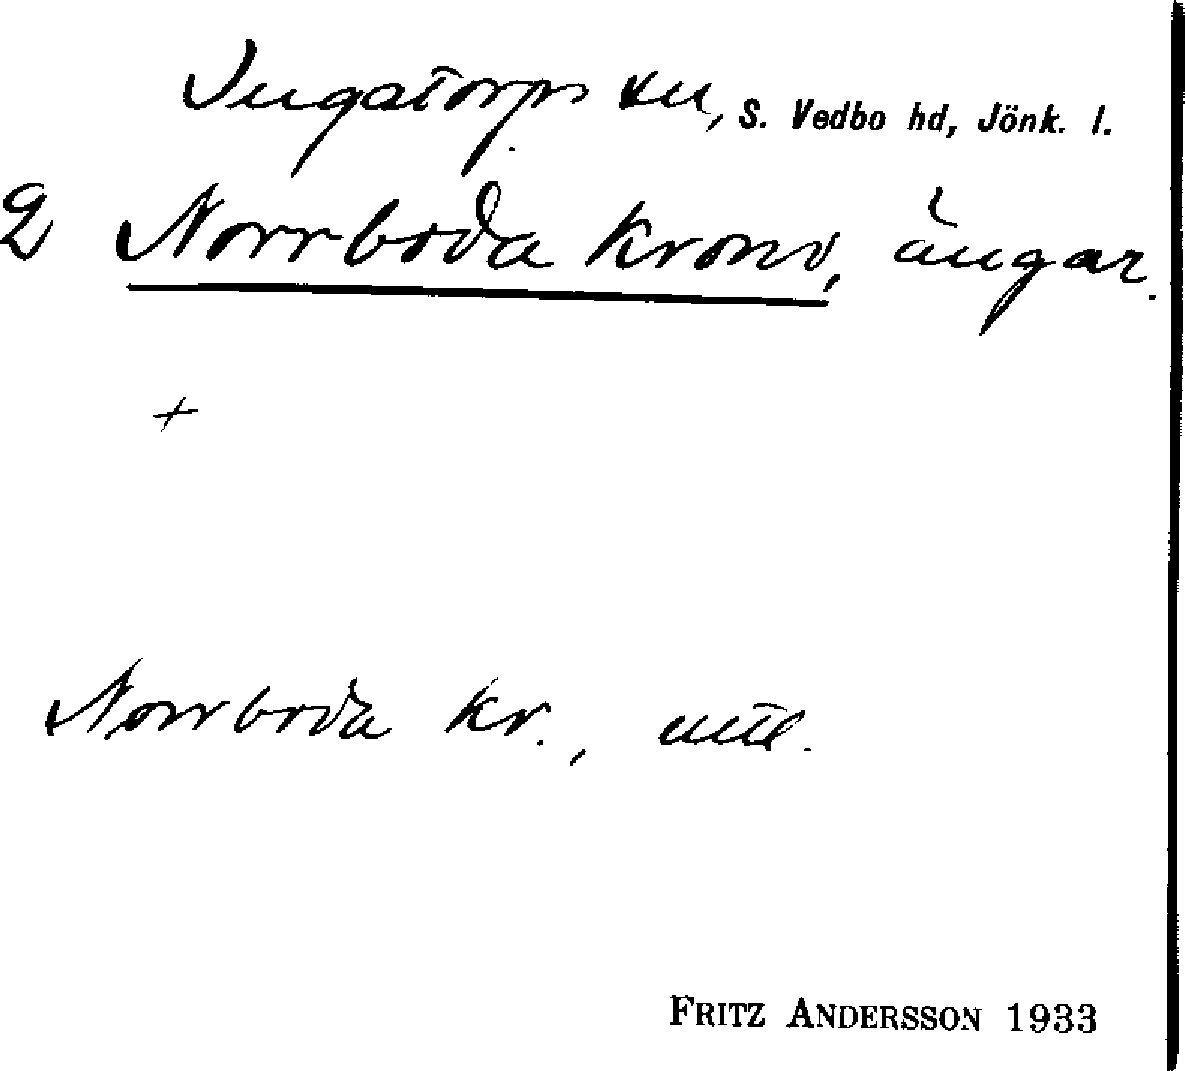 Ingatorps sn, S. Vedbo hd, Jönk. l.
2 Norrboda Krono, ängar.
+
Norrboda kr., uttl.
FRITZ ANDERSSON 1933